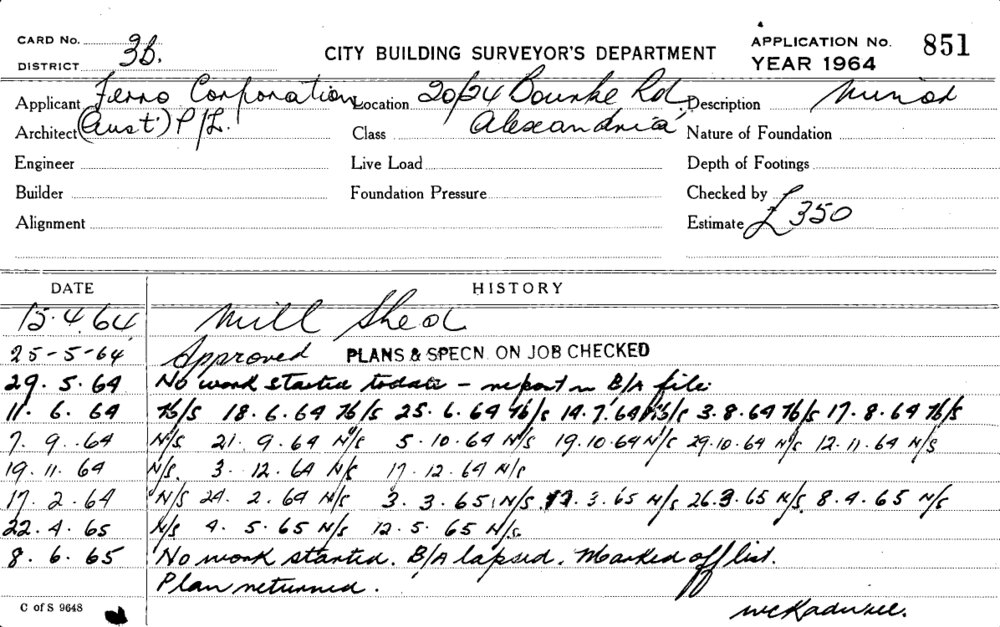 CARD No. 3b. CITY BUILDING SURVEYOR'S DEPARTMENT APPLICATION No. 851
DISTRICT YEAR 1964
Applicant Ferro Corporation Location 20/24 Bourke Rd, Description Minor
Architect (Aust) P/L. Class Alexandria Nature of Foundation
Engineer Live Load Depth of Footings
Builder Foundation Pressure Checked by
Alignment Estimate £350
DATE HISTORY
15.4.64 Mill Shed
25-5-64 Approved PLANS & SPECN. ON JOB CHECKED
29.5.64 No work started todate - report on B/A file.
11.6.64 N/S 18.6.64 N/S 25.6.64 N/S 14.7.64 N/S 3.8.64 N/S 17.8.64 N/S
7.9.64 N/S 21.9.64 N/S 5.10.64 N/S 19.10.64 N/S 29.10.64 N/S 12.11.64 N/S
19.11.64 N/S. 3.12.64 N/S 17.12.64 N/S
17.2.64 N/S 24.2.64 N/S 3.3.65 N/S 17.3.65 N/S 26.3.65 N/S. 8.4.65 N/S
22.4.65 N/S 4.5.65 N/S 12.5.65 N/S.
8.6.65 No work started. B/A lapsed. Marked off list.
Plan returned.
C of S 9648